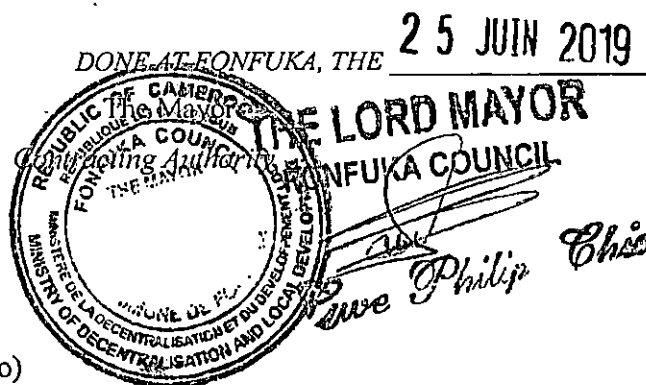 DONE AT FONFUKA, THE 25 JUIN 2019
The Mayor
Contracting Authority
THE LORD MAYOR
FONFUKA COUNCIL
REPUBLIC OF CAMERO
REPUBLIQUE
FONFUKA COUNCIL
THE MAYOR
COMMUNE DE
MINISTERE DE LA DECENTRALISATION ET DU DEVELOPPEMENT
MINISTRY OF DECENTRALISATION AND LOCAL DEVELOPMENT
Philip
o)